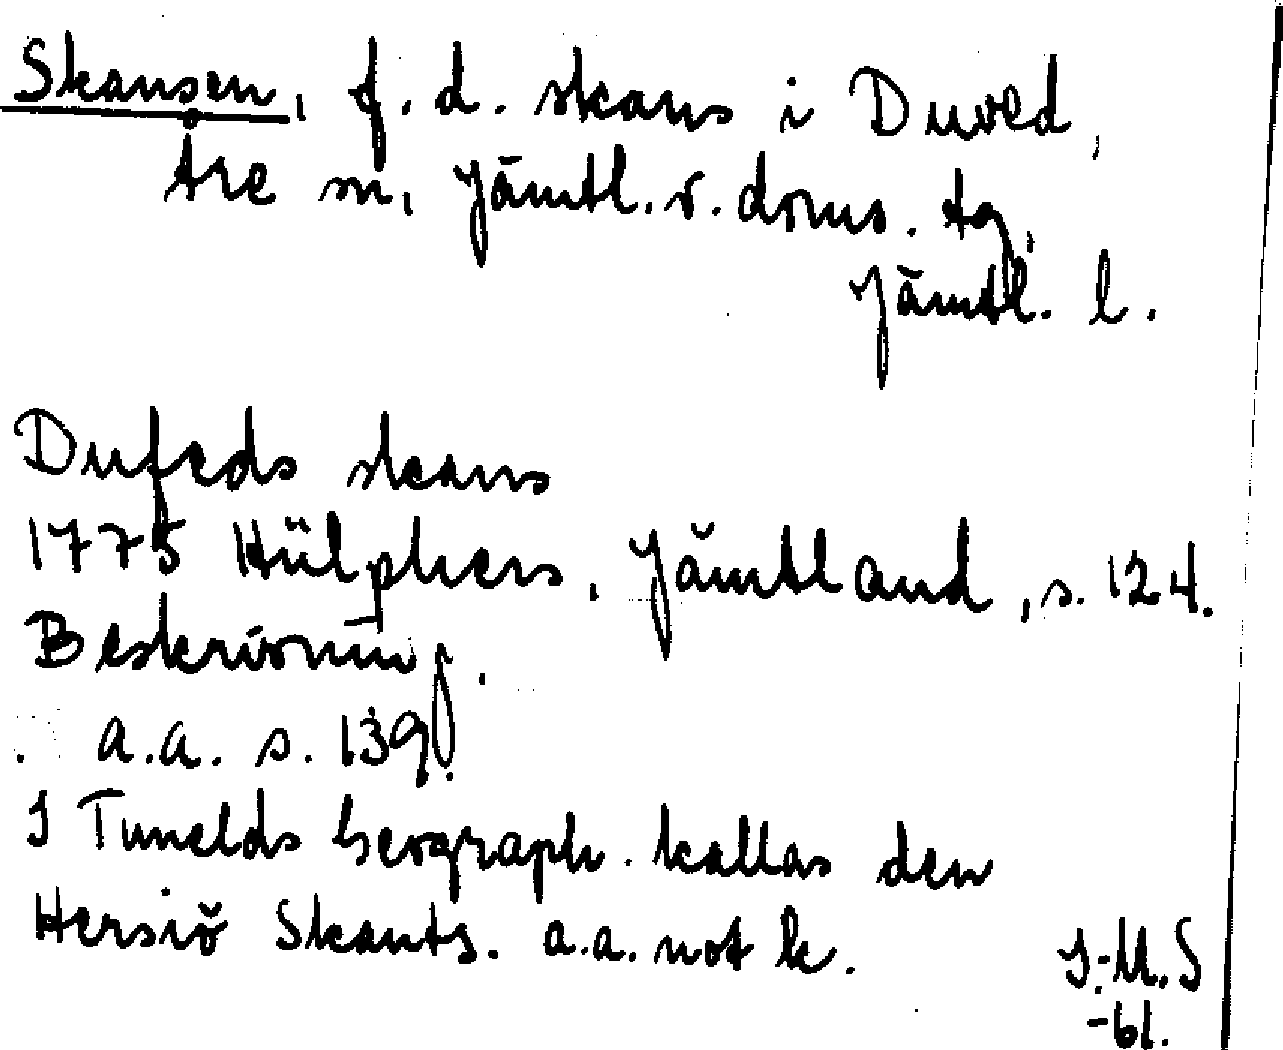 Skansen, f.d. skans i Duved,
Åre sn, Jämtl. v. doms. tg,
Jämtl. l.
Dufeds skans
1775 Hülphers, Jämtland, s. 124.
Beskrivning.
a.a. s. 139.
I Tunelds Geograph. kallas den
Hersiö Skants. a.a. not k.
I.-M.S
-61.